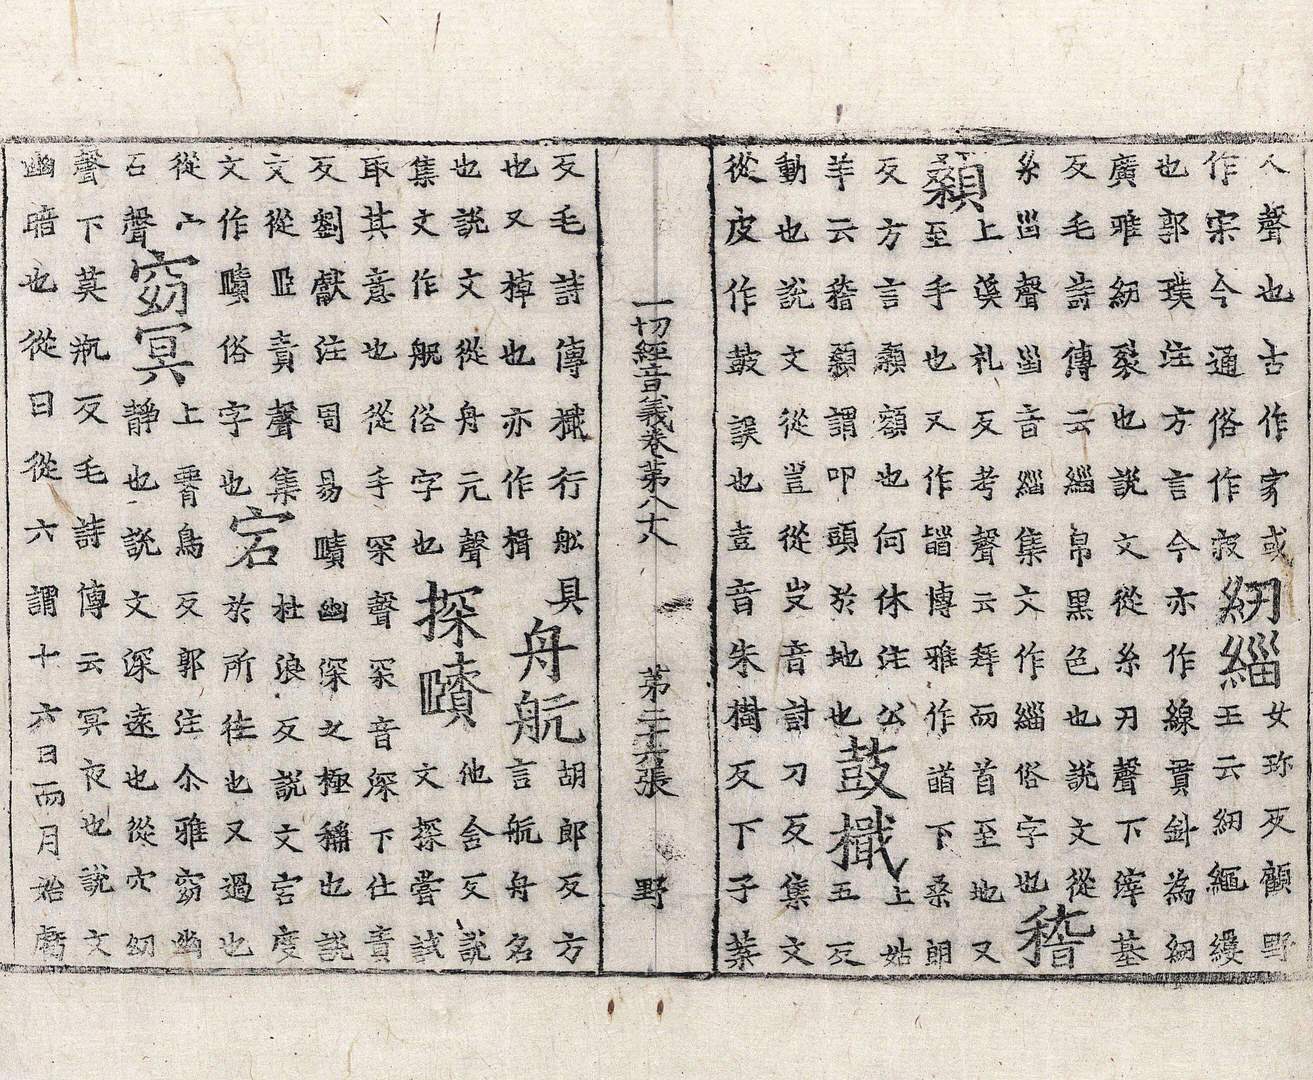 人聲也古作家或
作宗今通俗作寂紉緇女珎反顧野
王云紉繩縷
也郭璞注方言今亦作線貫針為紉
廣雅紉裂也說文從糸刃聲下滓基
反毛詩傳云緇帛黒色也說文從
糸甾聲甾音緇集文作緇俗字也稽
顙上溪礼反考聲云拜而首至地又
至手也又作䭫博雅作䭫下桑朗
反方言顙額也何休注公
羊云稽顙謂叩頭於地也鼓檝上姑
五反
動也說文從豈從攴音討刀反集文
從皮作皷誤也壴音朱樹反下子葉
一切經音義卷第八十八 第二十六張 野
反毛詩傳檝行舩具舟航胡郎反方
言航舟名
也又棹也亦作楫
也說文從舟亢聲
集文作舩俗字也探賾他含反說
文探甞試
取其意也從手罙聲罙音深下仕責
反劉獻注周易賾幽深之極稱也說
文從𦣞責聲集
文作賾俗字也窅杜浪反說文宕度
於所往也又過也
從宀
石聲窈冥上霄鳥反郭注尒雅窈幽
靜也說文深遠也從穴幼
聲下莫瓶反毛詩傳云冥夜也說文
幽暗也從日從六謂十六日而月始虧